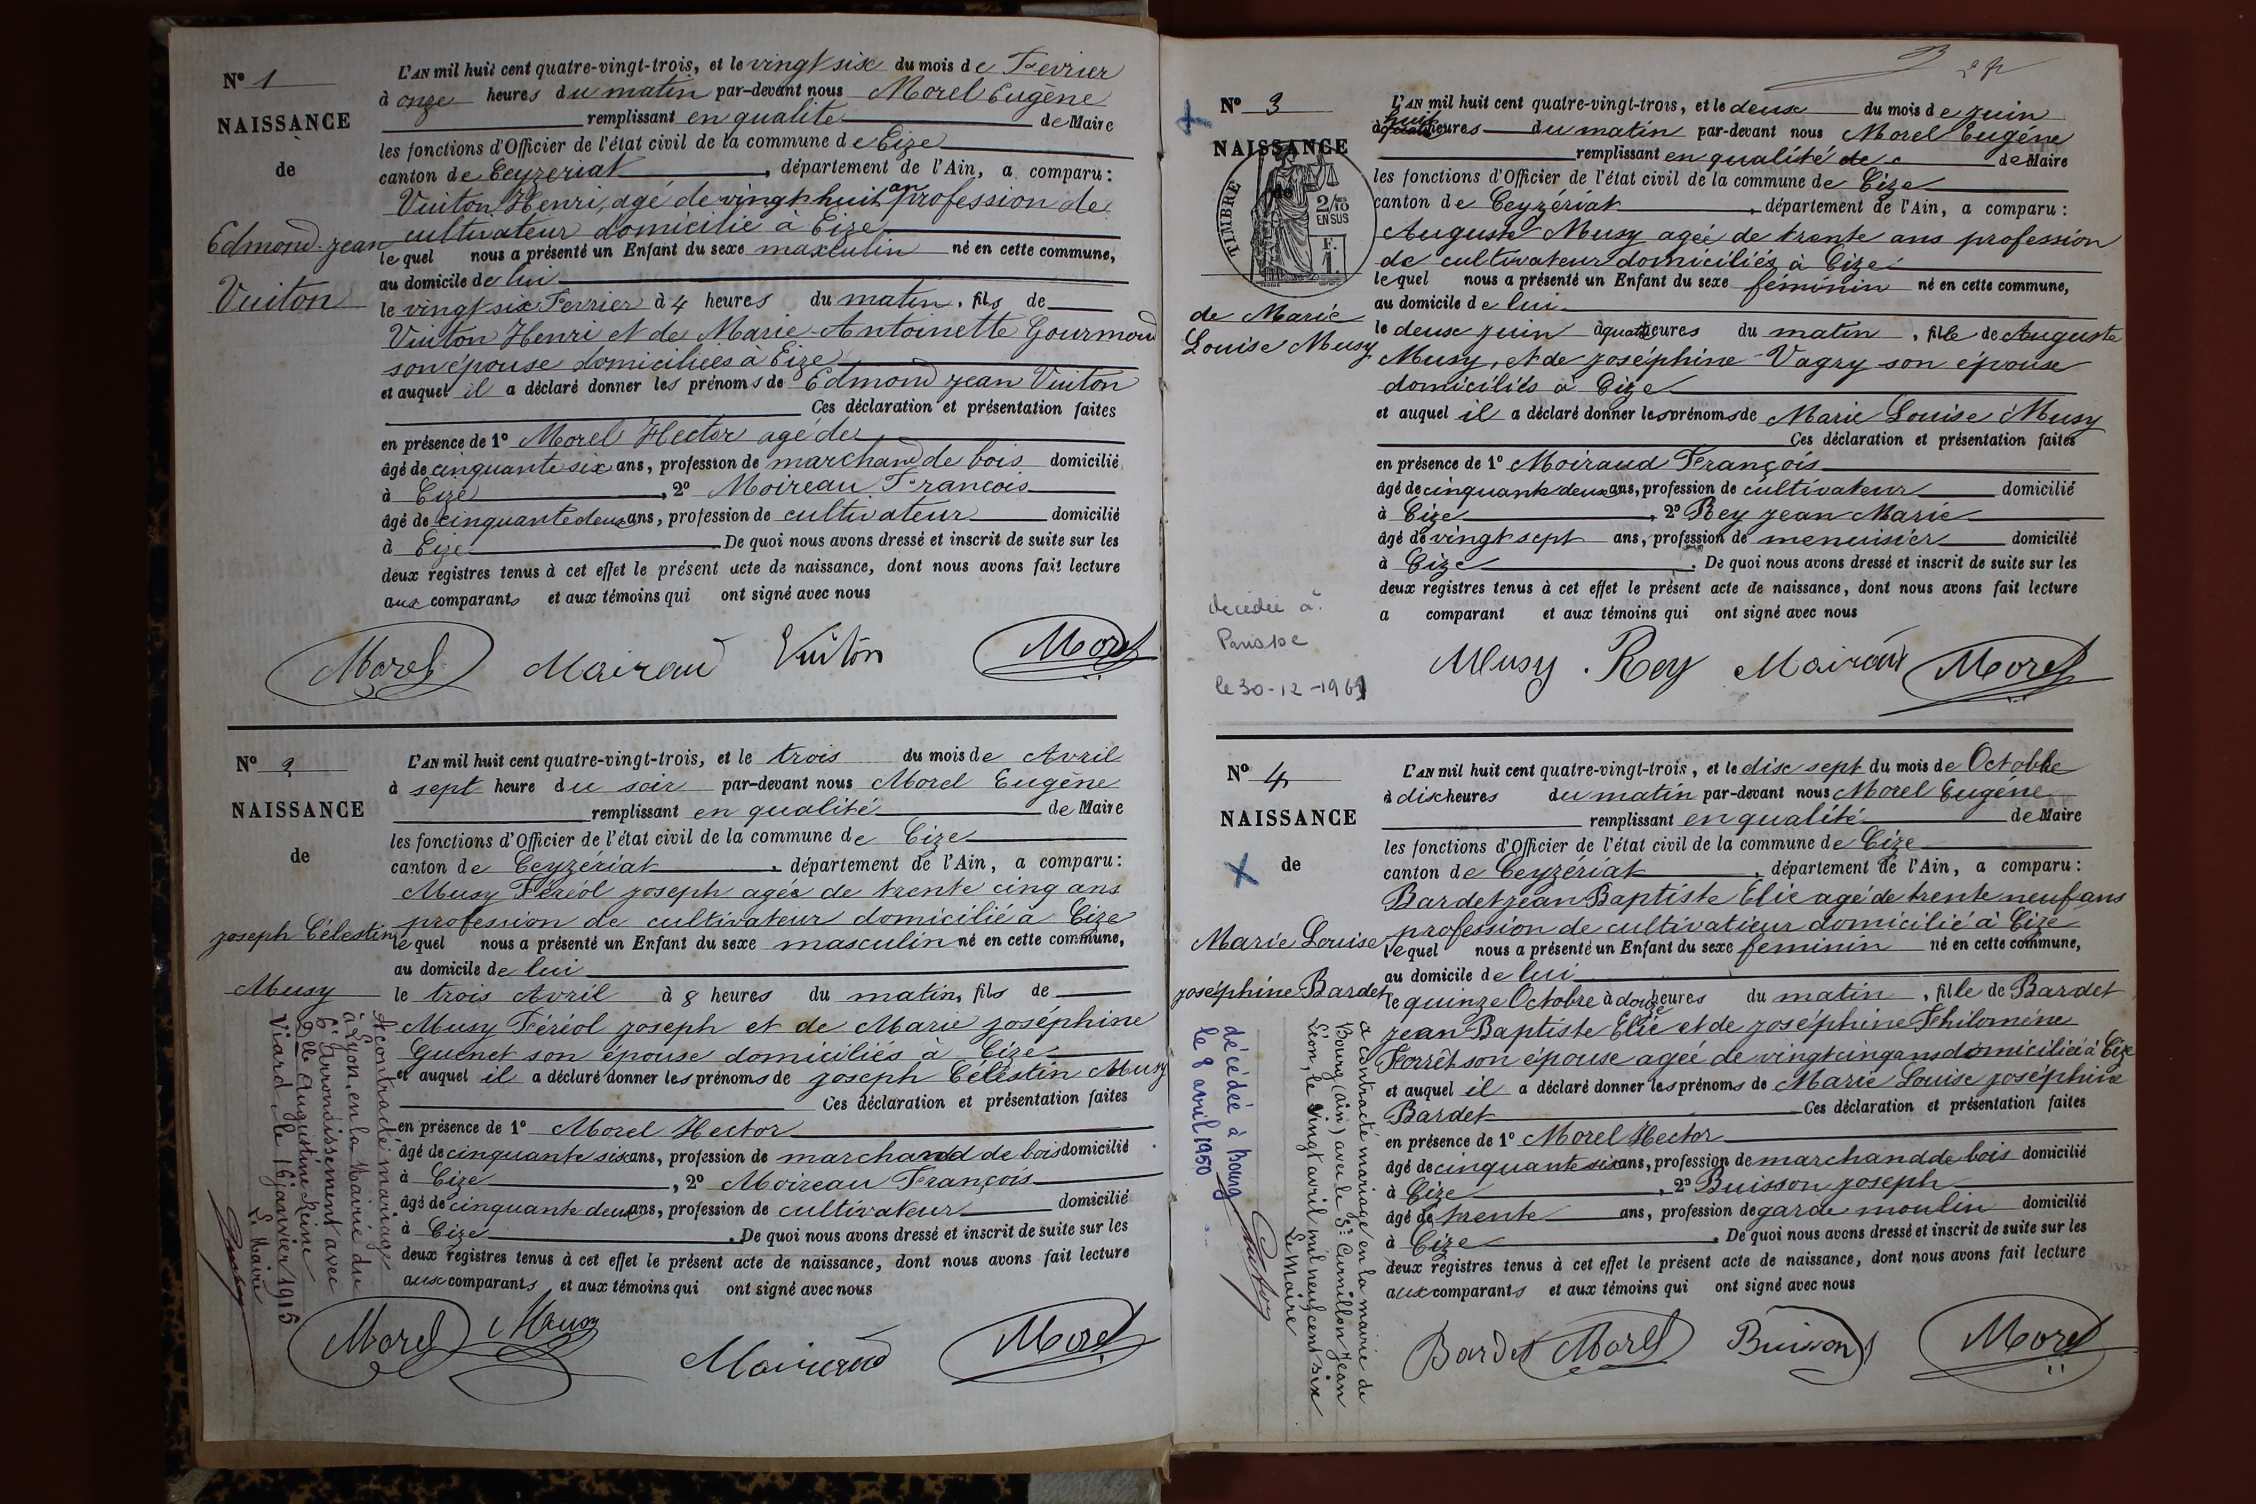 Nº 1
NAISSANCE
de
Edmond-Jean
Vuiton
L'AN mil huit cent quatre-vingt-trois, et le vingt six du mois de Fevrier
à onze heures du matin par-devant nous Morel Eugène
remplissant en qualité de Maire
les fonctions d'Officier de l'état civil de la commune de Cize
canton de Ceyzeriat, département de l'Ain, a comparu:
Vuiton Henri, agé de vingt huit an profession de
cultivateur domicilié à Cize
le quel nous a présenté un Enfant du sexe masculin né en cette commune,
au domicile de lui
le vingt six Fevrier à 4 heures du matin, fils de
Vuiton Henri et de Marie-Antoinette Gourmond
son épouse domiciliés à Cize
et auquel il a déclaré donner les prénoms de Edmond Jean Vuiton
Ces déclaration et présentation faites
en présence de 1º Morel Hector agé de
âgé de cinquante six ans, profession de marchand de bois domicilié
à Cize, 2º Moireau Francois
âgé de cinquante deux ans, profession de cultivateur domicilié
à Cize De quoi nous avons dressé et inscrit de suite sur les
deux registres tenus à cet effet le présent acte de naissance, dont nous avons fait lecture
aux comparants et aux témoins qui ont signé avec nous
Morel Mairaud Vuiton Morel
Nº 2
NAISSANCE
de
Joseph Célestin
Musy
L'AN mil huit cent quatre-vingt-trois, et le trois du mois de Avril
à sept heure du soir par-devant nous Morel Eugène
remplissant en qualité de Maire
les fonctions d'Officier de l'état civil de la commune de Cize
canton de Ceyzériat, département de l'Ain, a comparu:
Musy Féréol Joseph agés de trente cinq ans
profession de cultivateur domicilié à Cize
le quel nous a présenté un Enfant du sexe masculin né en cette commune,
au domicile de lui
le trois Avril à 8 heures du matin, fils de
Musy Féréol Joseph et de Marie Joséphine
Guenet son épouse domiciliés à Cize
et auquel il a déclaré donner les prénoms de Joseph Célestin Musy
Ces déclaration et présentation faites
en présence de 1º Morel Hector
âgé de cinquante six ans, profession de marchand de bois domicilié
à Cize, 2º Moireau François
âgé de cinquante deux ans, profession de cultivateur domicilié
à Cize. De quoi nous avons dressé et inscrit de suite sur les
deux registres tenus à cet effet le présent acte de naissance, dont nous avons fait lecture
aux comparants et aux témoins qui ont signé avec nous
Morel Musy Mairaud Morel
A contracté mariage
à Lyon, en la Mairie du
6e Arrondissement avec
Dlle Augustine Reine
Viard, le 16 janvier 1915
Le Maire
Nº 3
NAISSANCE
de
TIMBRE
2/10
EN SUS
F.
1.
de Marie
Louise Musy
L'AN mil huit cent quatre-vingt-trois, et le deux du mois de Juin
à huit heures du matin par-devant nous Morel Eugéne
remplissant en qualité de de Maire
les fonctions d'Officier de l'état civil de la commune de Cize
canton de Ceyzériat, département de l'Ain, a comparu:
Auguste Musy ageé de trente ans profession
de cultivateur domiciliés à Cize
le quel nous a présenté un Enfant du sexe féminin né en cette commune,
au domicile de lui
le deux Juin à quatre heures du matin, fille de Auguste
Musy, et de Joséphine Vagry son épouse
domiciliés à Cize
et auquel il a déclaré donner les prénoms de Marie Louise Musy
Ces déclaration et présentation faites
en présence de 1º Moiraud François
âgé de cinquante deux ans, profession de cultivateur domicilié
à Cize, 2º Rey Jean Marie
âgé de vingt sept ans, profession de menuisier domicilié
à Cize. De quoi nous avons dressé et inscrit de suite sur les
deux registres tenus à cet effet le présent acte de naissance, dont nous avons fait lecture
a comparant et aux témoins qui ont signé avec nous
Musy Rey Mairaud Morel
décédée à
Paris 10e
le 30-12-1961
Nº 4
NAISSANCE
de
Marie Louise
Joséphine Bardet
L'AN mil huit cent quatre-vingt-trois, et le dix sept du mois de Octobre
à dix heures du matin par-devant nous Morel Eugéne
remplissant en qualité de Maire
les fonctions d'Officier de l'état civil de la commune de Cize
canton de Ceyzériat, département de l'Ain, a comparu:
Bardet Jean Baptiste Elie agé de trente neuf ans
profession de cultivatieur domicilié à Cize
le quel nous a présenté un Enfant du sexe feminin né en cette commune,
au domicile de lui
le quinze Octobre à douze heures du matin, fille de Bardet
Jean Baptiste Elie et de Joséphine Philoméne
Forrêt son épouse ageé de vingt cinq ans domiciliée à Cize
et auquel il a déclaré donner les prénoms de Marie Louise Joséphine
Bardet Ces déclaration et présentation faites
en présence de 1º Morel Hector
âgé de cinquante six ans, profession de marchand de bois domicilié
à Cize, 2º Buisson Joseph
âgé de trente ans, profession de garde moulin domicilié
à Cize. De quoi nous avons dressé et inscrit de suite sur les
deux registres tenus à cet effet le présent acte de naissance, dont nous avons fait lecture
aux comparants et aux témoins qui ont signé avec nous
Bardet Morel Buisson Morel
a contracté mariage en la mairie de
Bourg (Ain) avec le Sr Curnillon Jean
Léon, le vingt avril mil neuf cent six
Le Maire
décédée à Bourg
le 8 avril 1950